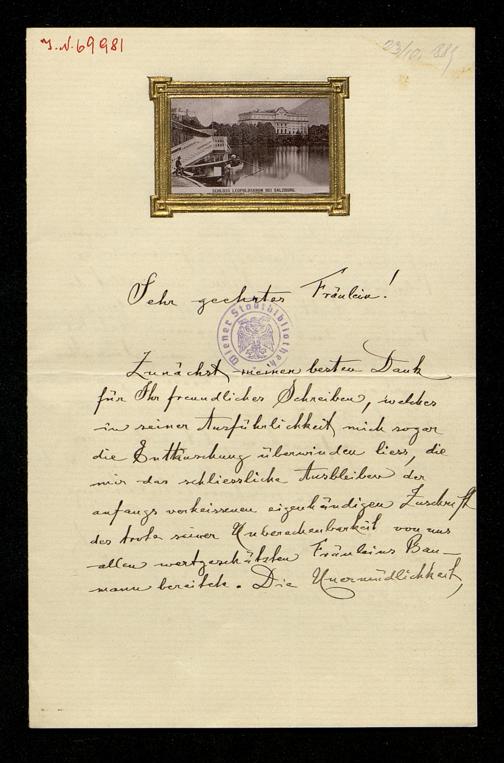 J.N. 69981
23/10. 889
SCHLOSS LEOPOLDSKRON BEI SALZBURG.
Sehr geehrtes Fräulein!
Wiener Stadtbibliothek.
Zunächst meinen besten Dank
für Ihr freundliches Schreiben, welches
in seiner Ausführlichkeit mich sogar
die Enttäuschung überwinden liess, die
mir das schliessliche Ausbleiben der
anfangs verheissenen eigenhändigen Zuschrift
des trotz seiner Unberechenbarkeit von uns
allen wertgeschätzten Fräuleins Bau-
mann bereitete. Die Unermüdlichkeit,